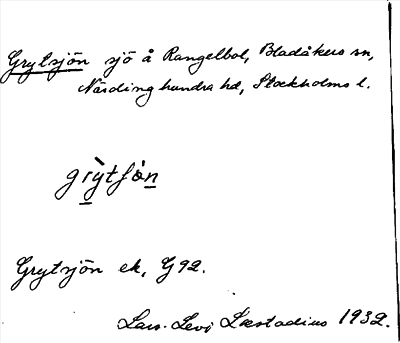 Grytsjön sjö å Rangelbol, Bladåkers sn,
Närdinghundra hd, Stockholms l.
grỳtſòn
Grytsjön ek, G92.
Lars-Levi Læstadius 1932.